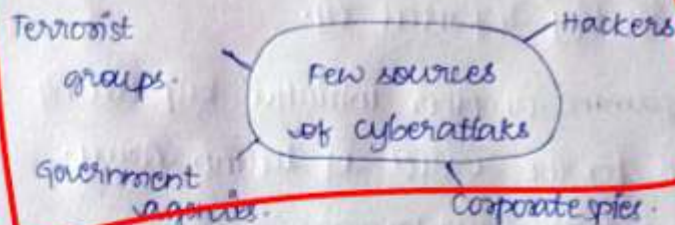 Terrorist Hackers
groups. Few sources
of cyberattaks
Government
agencies. Corporate spies.